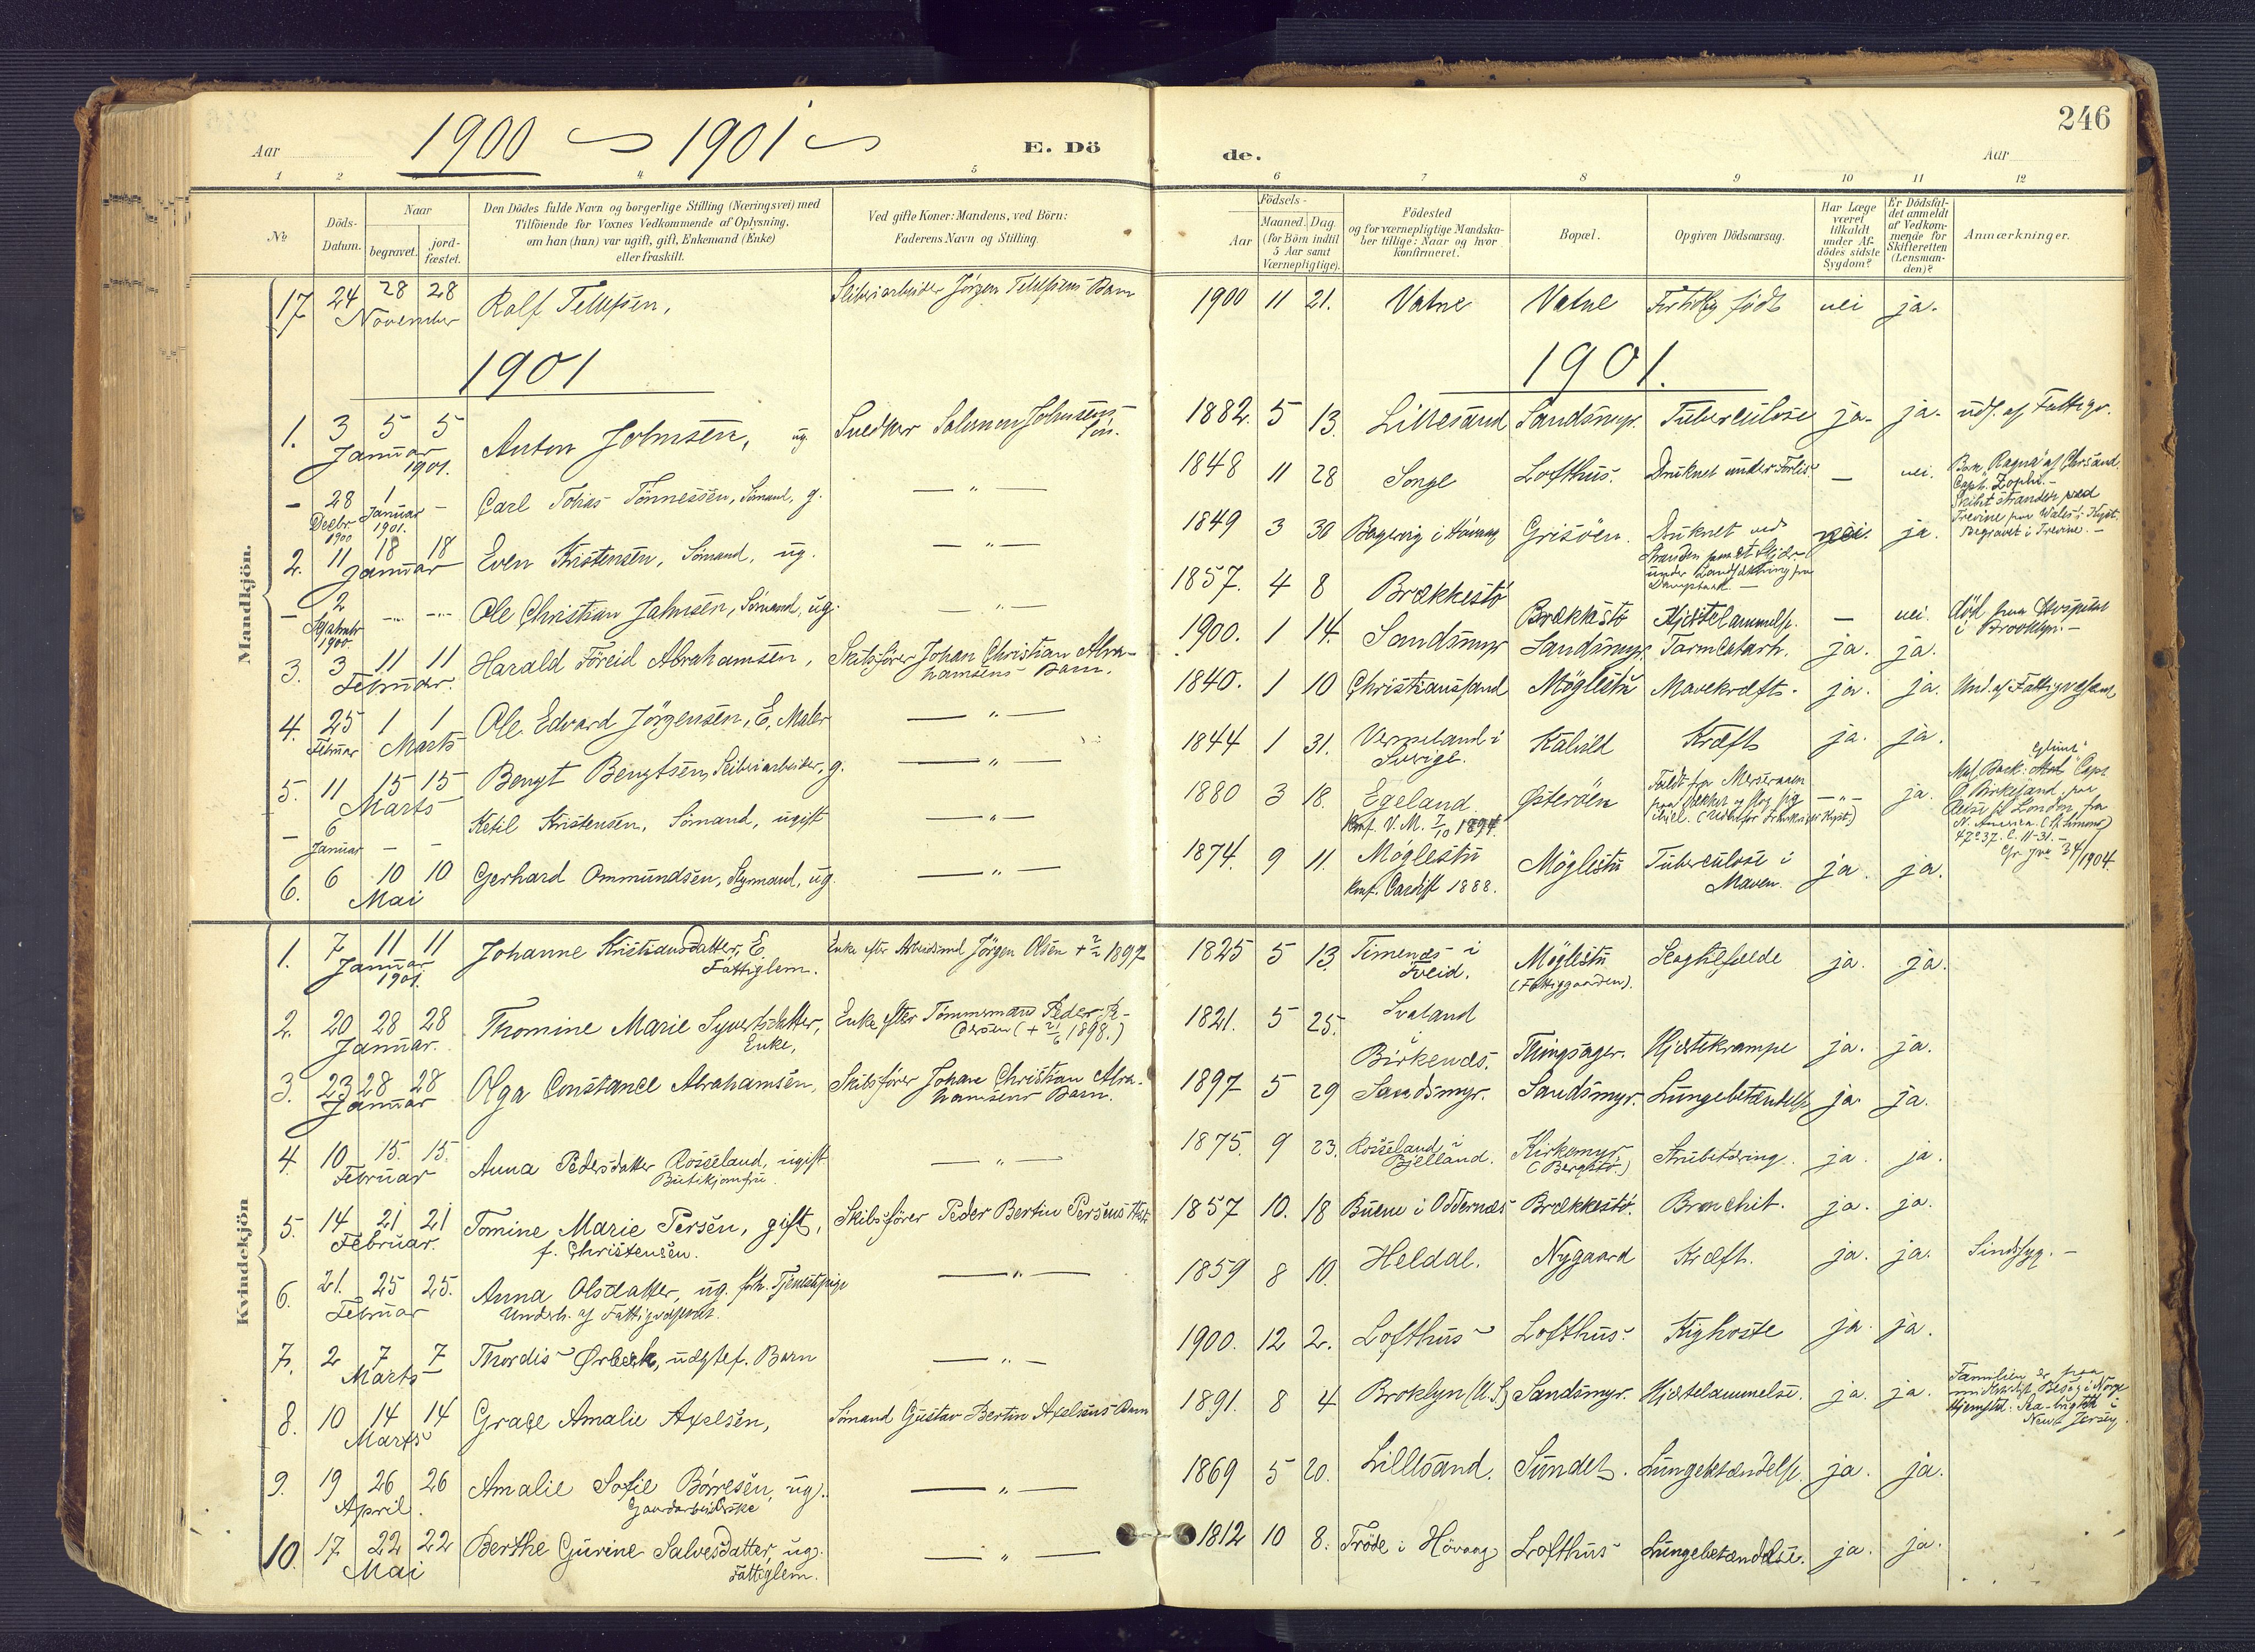 246
Aar 1900 ~ 1901 ~ E. Dö
de. Aar
1 2 3 4 5
6 7 8 9 10 11 12
No
Döds-
Datum.
Naar
begravet.
jord-
fæstet.
Den Dödes fulde Navn og borgerlige Stilling (Næringsvei) med
Tilföiende for Voxnes Vedkommende af Oplysning,
om han (hun) var ugift, gift, Enkemand (Enke)
eller fraskilt.
Ved gifte Koner: Mandens, ved Börn:
Faderens Navn og Stilling.
Födsels-
Aar
Maaned. Dag
(for Börn indtil
5 Aar samt
Værnepligtige).
Födested
og for værnepligtige Mandska-
ber tillige: Naar og hvor
konfirmeret.
Bopæl.
Opgiven Dödsaarsag.
Har Læge
været
tilkaldt
under Af-
dödes sidste
Sygdom?
Er Dödsfal-
det anmeldt
af Vedkom-
mende for
Skifteretten
(Lensman-
den)?
Anmærkninger.
Mandkjön.
17 24 28 28 Ralf Tellefsen, Jörgen Tellefsens Barn 1900 11 21. Vatne Vatne født nei ja.
November
1901 1901.
1. 3 5 5 Anton Johnsen, ug. Snedker Salomon Johnsens 1882. 5 13. Lillesand Sandsmyr. Tuberculose ja. ja. udf. af Fattigv.
Januar Sön.
1901.
– 28 1 – Carl Tobias Tönnessen, Sömand, g. — " — 1848 11 28 Songe Lofthus. Druknet under Forlis. — nei. Bark "Ragna" af Chrsand.
Decbr Januar Capt. Zophe. –
1900 1901. Skibet strandet ved
Trevine paa Wales's Kyst.
Begravet i Trevine. –
2. 11 18 18 Even Kristensen, Sömand, ug. — " — 1849 3 30 Bagevig i Hövaag Grisöen. Druknet ved nei. ja.
Januar
under
– 2 – – Ole Christian Jahnsen, Sömand, ug. — " — 1857. 4 8 Brækkestö Brækkestö Hjertelammelse. — nei. död paa Hospital
1900. i Brooklyn. –
3. 3 11 11 Harald Föreid Abrahamsen, Skibsförer Johan Christian Abra- 1900. 1 14. Sandsmyr Sandsmyr. Tarmcatarh. ja. ja.
Februar. hamsens Barn.
4. 25 1 1 Ole Edvard Jörgensen, E. Maler — " — 1840. 1 10 Christianssand Möglestu Mavekræft. ja. ja. Und. af Fattigvæsenet
Februar Marts
5. 11 15 15 Bengt Bengtsen, g. — " — 1844 1 31. Vermeland i Kaldvld Kræft ja. ja.
Marts Sverige.
– 6 – – Ketil Kristensen, Sömand, ugift — " — 1880 3 18. Egeland Østeröen Faldt fra Merseraaen — " — ja.
Januar Konf. V. M. 7/10 1894. paa Dækket og slog sig
ihjel.
London, fra
N. Amerika.
47°37.
34/1904.
6. 6 10 10 Gerhard Ommundsen, Styrmand, ug. — " — 1874. 9 11. Möglestu Möglestu Tuberculose i ja. ja.
Mai Konf. Cardiff 1888. Maven.
Kvindekjön
1. 7 11 11 Johanne Kristiansdatter, E. Enke efter Arbeidsmd Jörgen Olsen + 1897 1825 5 13. Timenes i Möglestu Slagtilfælde ja. ja.
Januar Fattiglem. Tveid. (Fattiggaarden).
1901.
2. 20 28 28 Thomine Marie Syvertsdatter, Enke efter Tömmermand Peder Pe- 1821. 5 25. Svaland
Januar. Enke, dersen (+ 21/6 1898.) i
Birkenæs. Thingsager. Hjertekrampe ja. ja.
3. 23 28 28 Olga Constance Abrahamsen, Skibsförer Johan Christian Abra- 1897 5 29 Sandsmyr. Sandsmyr. Lungebetændelse ja. ja.
Januar hamsens Barn.
4. 10 15. 15. Anna Pedersdatter Rosseland, ugift — " — 1875. 9 23. Rosseland i Kirkemyr. Strubetæring. ja. ja.
Februar Butikjomfru. Bjelland.
5. 14 21 21 Tomine Marie Persen, gift, Skibsförer Peder Bertin Persens Hstr. 1857 10. 18 Buene i Oddernæs Brækkestö. Bronchit. ja. ja.
Februar. f. Christensen.
6. 21. 25 25. Anna Olsdatter, ug. fhv. Tjenestepige — " — 1859 8 10. Heldal. Nygaard Kræft. ja. ja. Sindssyg. –
Februar Underh. af Fattigvæsenet.
7. 2 7 7 Thordis Ørbæk, udgtef. Barn — " — 1900. 12 2. Lofthus Lofthus Kighoste ja. ja.
Marts
8. 10 14 14 Grace Amalie Axelsen, Sömand Gustav Bertin Axelsens Barn 1891. 8 4 Broklyn (U.S.) Sandsmyr. Hjertelammelse. ja. ja. Familien er paa
Marts Besög i Norge
Hjemsted: Sea-bright i
New Jersey.
9. 19 26 26 Amalie Sofie Börresen, ug. — " — 1869 5 20. Lillesand. Sundet. Lungebetændelse. ja. ja.
April.
10. 17 22 22 Berthe Gurine Salvesdatter, ug. — " — 1812 10 8. Tröde i Hövaag Lofthus Lungebetændelse. ja. ja.
Mai Fattiglem.